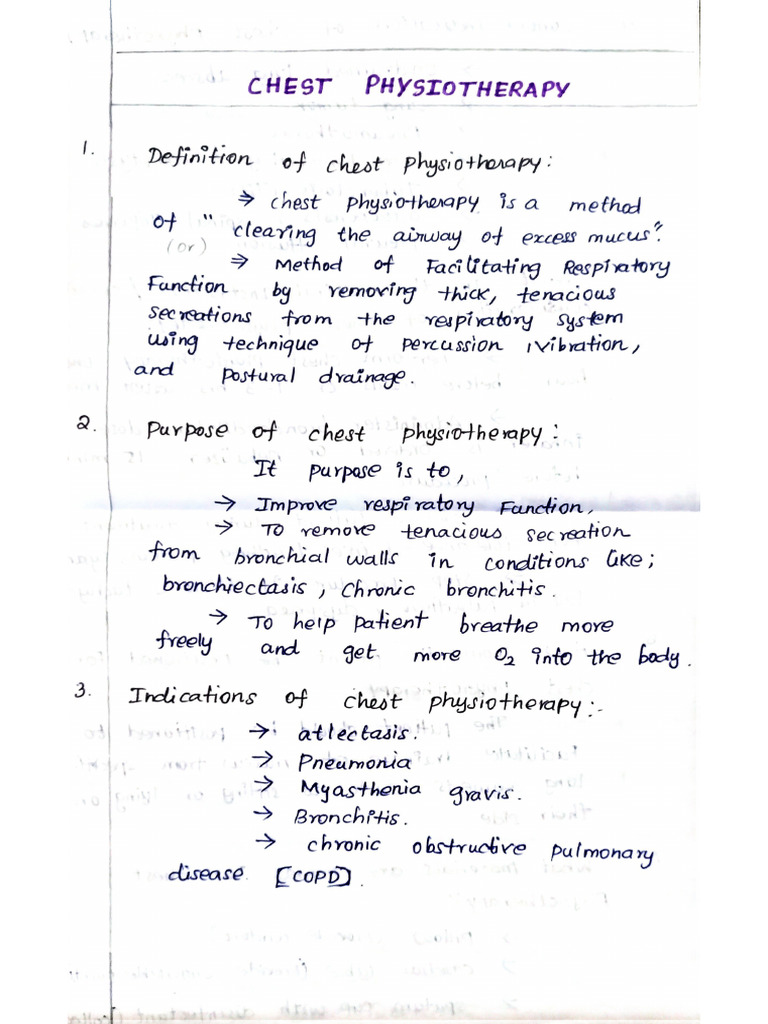 CHEST PHYSIOTHERAPY
1. Definition of chest physiotherapy:
⇒ chest physiotherapy is a method
of "clearing the airway of excess mucus".
(or)
⇒ Method of Facilitating Respiratory
Function by removing thick, tenacious
secreations from the respiratory system
using technique of percussion, vibration,
and postural drainage.
2. Purpose of chest physiotherapy:
It purpose is to,
→ Improve respiratory Function,
→ To remove tenacious secreation
from bronchial walls in conditions like;
bronchiectasis, chronic bronchitis.
→ To help patient breathe more
freely and get more O2 into the body.
3. Indications of chest physiotherapy:-
→ atlectasis.
→ Pneumonia
→ Myasthenia gravis.
→ Bronchitis.
→ chronic obstructive pulmonary
disease. [COPD].